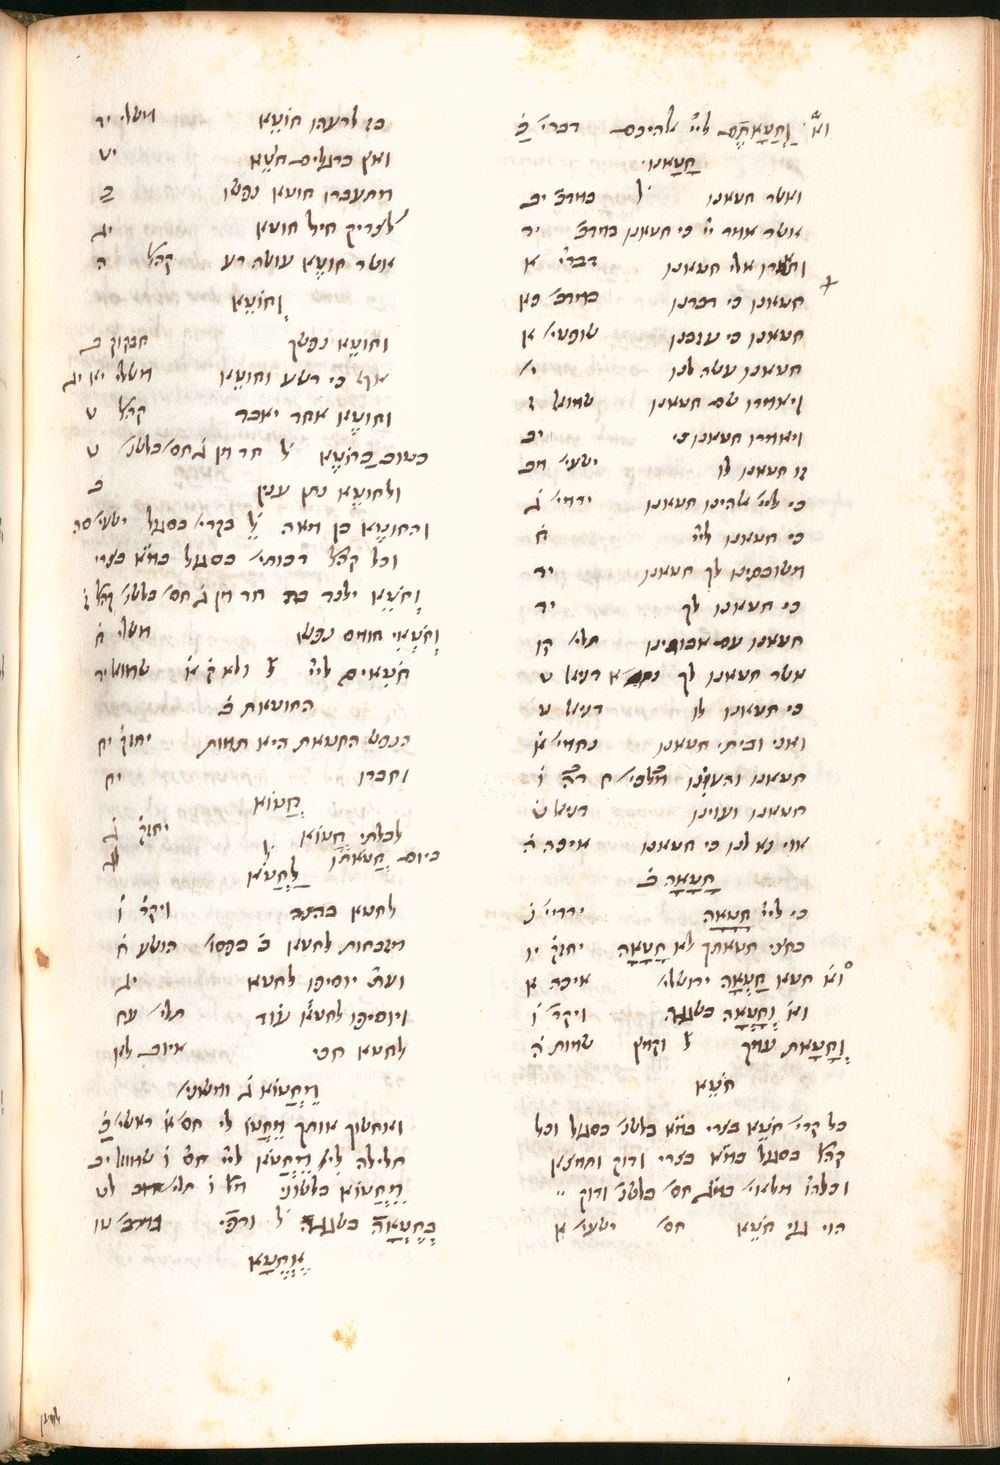 וא' וַחֲטָאתֶם ליי' אלהיכם דברי' כ'
חָטָאנוּ
ואשר חטאנו ל' במדב' יב
אשר אמר יי' כי חטאנו במדב' יד
ותענו אלי חטאנו דברי' א
חטאנו כי דברנו במדב' כא
חטאנו כי עזבנו שופטי' א
חטאנו עשה לנו י'
ויאמרו שם חטאנו שמואל ז
ויאמרו חטאנו כי יב
זו חטאנו לו ישעי' מב
כי ליי' אלהינו חטאנו ירמי' ג
כי חטאנו ליי' ח
משובתינו לך חטאנו יד
כי חטאנו לך יד
חטאנו עם אבותינו תלי' קו
אשר חטאנו לך דניאל ט
כי חטאנו לו דניאל ט
ואני ובית אבי חטאנו נחמי' א
חטאנו והעוינו מלכי' ח דה' ו
חטאנו ועוינו דניאל ט
אוי נא לנו כי חטאנו איכה ה
חָטָאָה ב'
כי ליי' חָטָאָה ירמי' נ
בחצי חטאתך לא חָטָאָה יחזק' יו
וא' חטא חָטְאָה ירושלי' איכה א
וא' וְחָטְאָה בשגגה ויקר' ו
וְחָטָאת עמך ל' וקמץ שמות ה
חֹטֵא
כל קרי' חֹטֵא בצרי במ"א בלשו' בסגול וכל
קהל' בסגול במ"א בצרי ודוק ותמצא
ובלהו מלאי' במ"ג חס' בלשו' ודוק
הוי גוי חֹטֵא חס' ישעי' א
בז לרעהו חוֹטֵא משלי יד
ואץ ברגלים חוטא יט
מתעברו חוטא נפשו כ
לצדיק חיל חוטא יג
אשר חוטֶא עושה רע קהל' ח
וְחוֹטֵא
וחוטֵא נפשך חבקוק ב
אף כי רשע וחוטא משלי יא יג
וחוטֶא אחד יאבד קהל' ט
כטוב כַּחוֹטֶא ל' חד מן ג' חס' בלשו' ט
ולחוטֶא נתן ענין ב
והחוטֶא בן מאה ל' בקרי' בסגול ישעי' סה
וכל קהל' דכותי' בסגול במ"א בצרי
וְחֹטֵא ילכד בה חד מן ג' חס' בלשו' קהל' ז
וְחֹטְאִי חומס נפשו משלי ח
חֹטִאים ליי' ל' ולא ק' א' שמואל יד
החוטאת ב'
הנפש החטאת היא תמות יחזק' יח
וחברו יח
חֲטוֹא
לבלתי חֲטוֹא יחזק' ג
ביום חֲטאתו
לַחֲטֹא
לחטא בהנה ויקר' ו
מזבחות לחטא ב' בפסו' הושע ח
ועתה יוסיפו לחטא יג
ויוסיפו לחטא עוד תלי' עח
לחטא חכי איוב לא
מֵחֲטוֹא ג' ומשני'
ואחשוך אותך מֵחֲטוֹ לי חס' א' ראשי' כ
חלילה לי מֵחֲטֹא ליי' חס' ו' שמואל יב
מֵחֲטוֹא בלשוני מל' ו' תלי' לט
בְּחֶטְאָה בשגגה ל' ורפי' במדב' טו
אֶחֱטָא